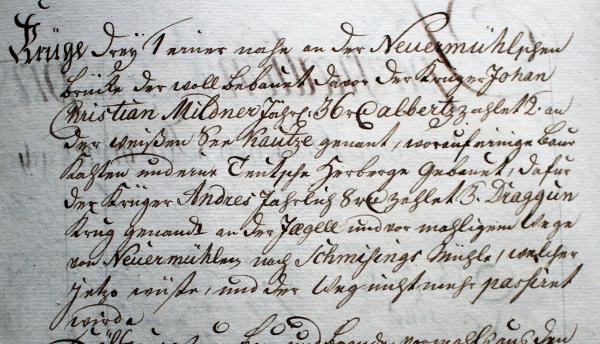 Krüge drey / 1 einer nahe an der Neuermühlschen
brücke der woll bebauet, davor der Krüger Johan
Christian Mildner Jährl: 36 r albertz zahlet 2. an
der weißen See Kautze genant, worauf einige Baur
Kahten und eine Teutsche Herberge Gebauet, dafür
der Krüger Andres Jahrlich 8 r zahlet 3. Draggun
Krug genandt an der Jaegell und vor mahligem Wege
von Neuermühlen nach Schmisings Mühle, welcher
jetzo wüste, und der Weg nicht mehr passiret
wird
und vormahls aus den